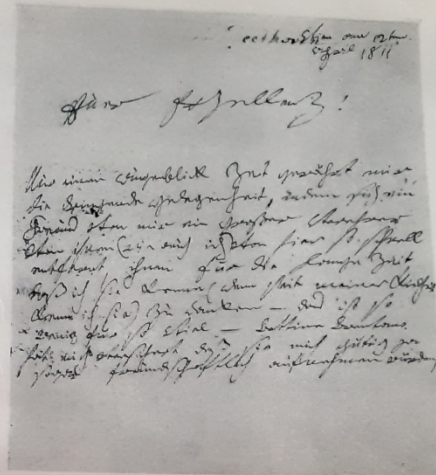 am 12ten
April 1811
Euer Exzellenz!
Nur einen Augenblick Zeit gewährt mir
die dringende Gelegenheit, indem sich ein
Freund von mir ein großer Verehrer
von ihnen (wie auch ich) von hier so schnell
entfernt, ihnen für die lange Zeit
daß ich sie kenne (denn seit meiner Kindheit
kenne ich sie) zu danken — das ist so
wenig für so viel — Bettine Brentano
hat mich versichert, daß sie mich gütig ja
sogar freundschaftlich aufnehmen würden